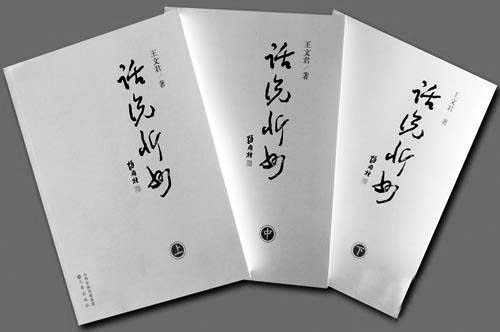 王文君/著
话说忻州
上
王文君/著
话说忻州
中
王文君/著
话说忻州
下